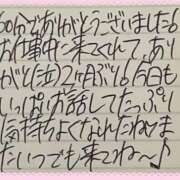 60分でありがとうございました6
お仕事中に来てくれて、あり
がと(泣)2ヶ月ぶり6今日も
いっぱいお話してたっぷり
気持ちよくなれたねけま
たいつでも来てね〜♪